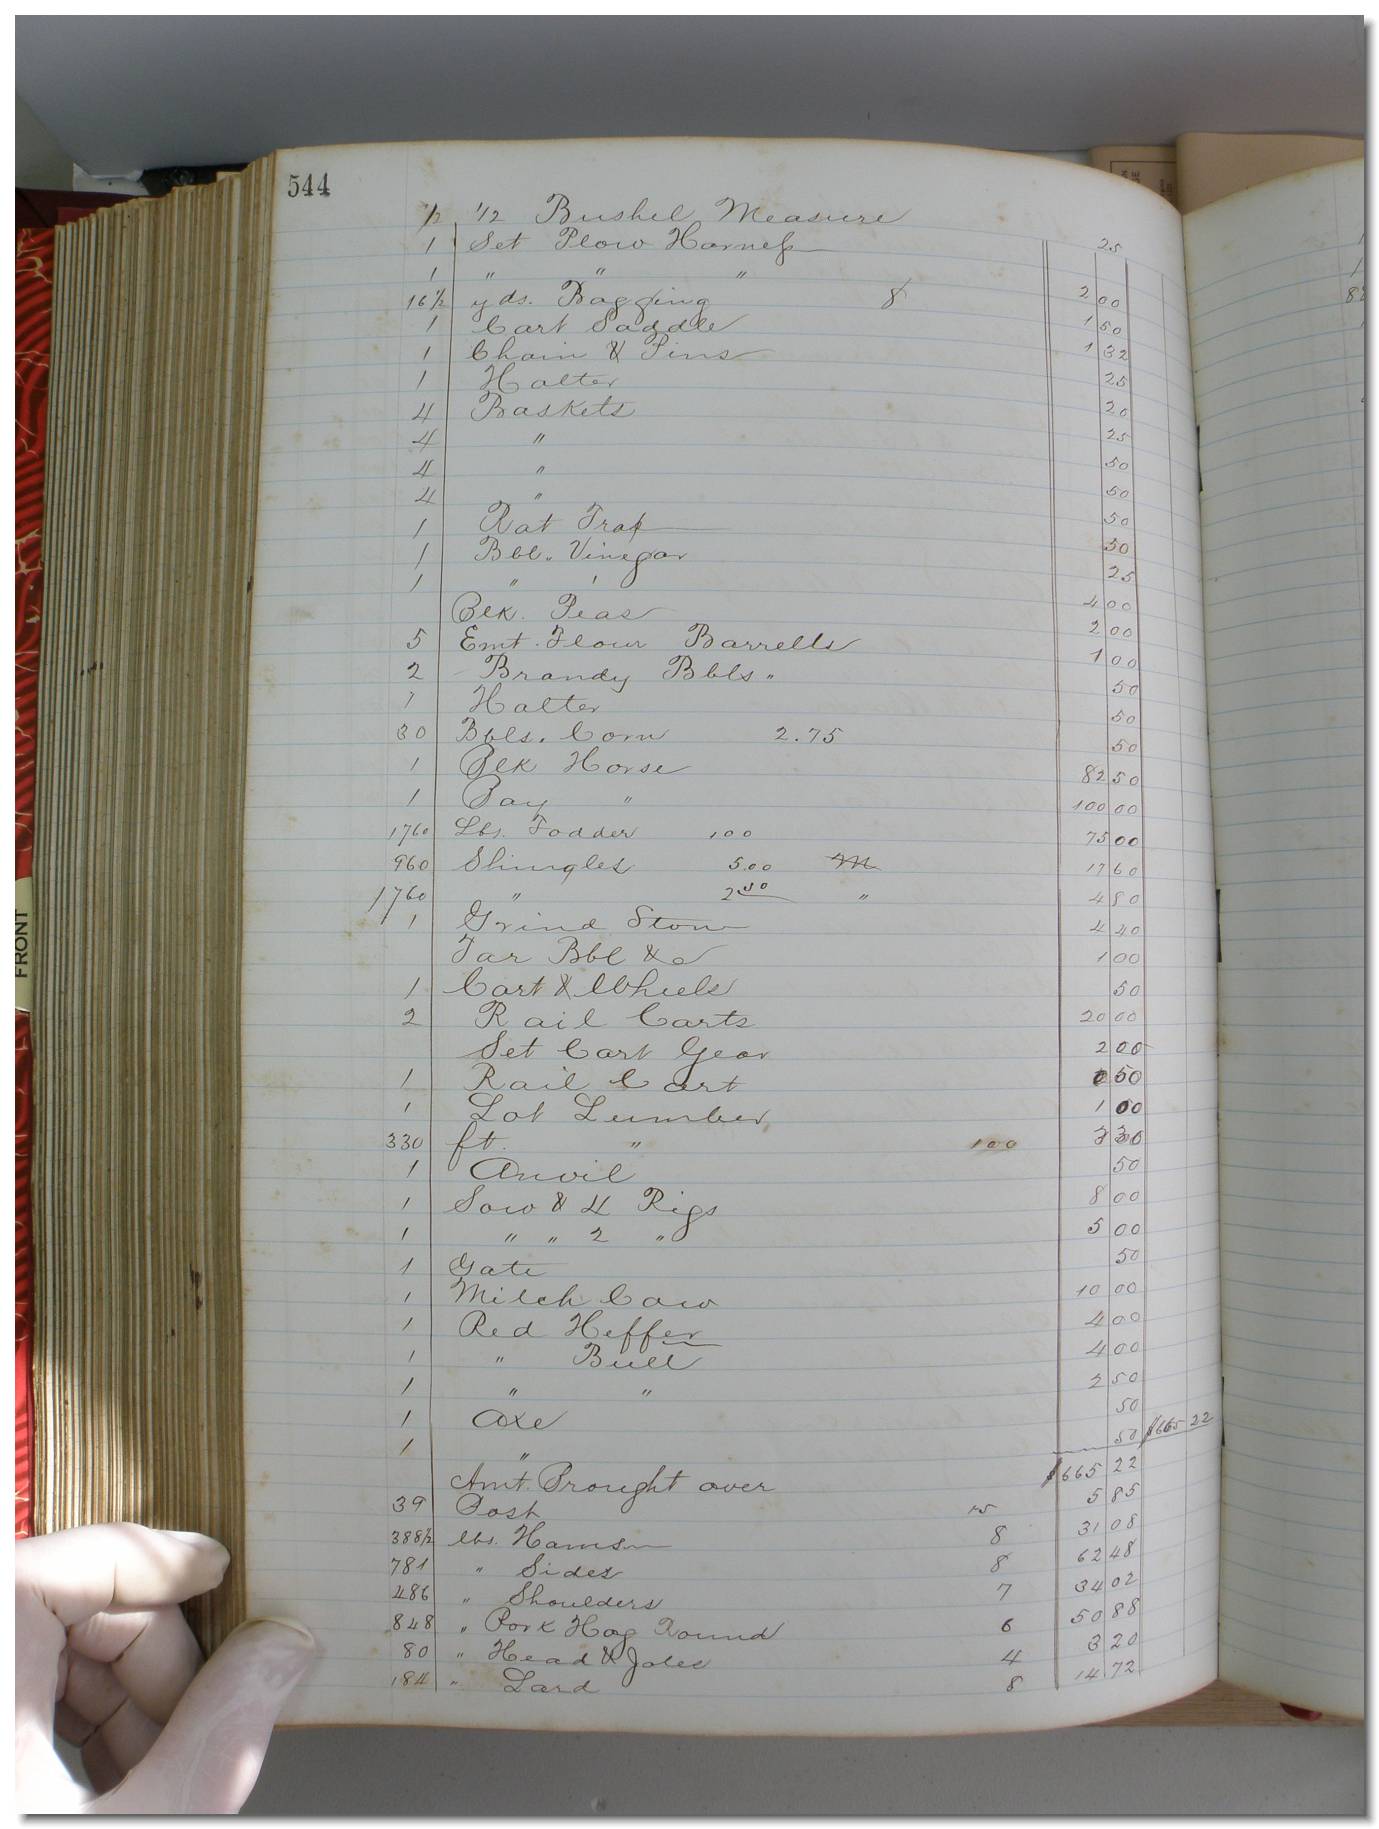 544
1/2 1/2 Bushel Measure 25
1 Set Plow Harness 2 00
1 " " " 1 50
16 1/2 yds. Bagging 8 1 32
1 Cart Saddle 25
1 Chain & Pins 20
1 Halter 25
4 Baskets 50
4 " 50
4 " 50
4 " 50
1 Rat Trap 25
1 Bbl. Vinegar 4 00
1 " " 2 00
Blk. Peas 1 00
5 Emt. Flour Barrells 50
2 Brandy Bbls. 50
1 Halter 50
30 Bbls. Corn 2.75 82 50
1 Blk Horse 100 00
1 Bay " 75 00
1760 Lbs. Fodder 100 17 60
960 Shingles 5.00 M 4 80
1760 " 2 50 " 4 40
1 Grind Stone 1 00
Tar Bbl &c 50
1 Cart & Wheels 20 00
2 Rail Carts
Set Cart Gear 2 00
1 Rail Cart 50
1 Lot Lumber 1 00
330 ft. " 100 3 30
1 Anvil 50
1 Sow & 4 Pigs 8 00
1 " " 2 " 5 00
1 Gate 50
1 Milch Cow 10 00
1 Red Heffer 4 00
1 " Bull 4 00
1 " " 2 50
1 Axe 50
1 " 50 $665 22
Amt. Brought over $665 22
39 Post 15 5 85
388 1/2 lbs. Hams 8 31 08
781 " Sides 8 62 48
486 " Shoulders 7 34 02
848 " Pork Hog Round 6 50 88
80 " Head & Joles 4 3 20
184 " Lard 8 14 72
FRONT